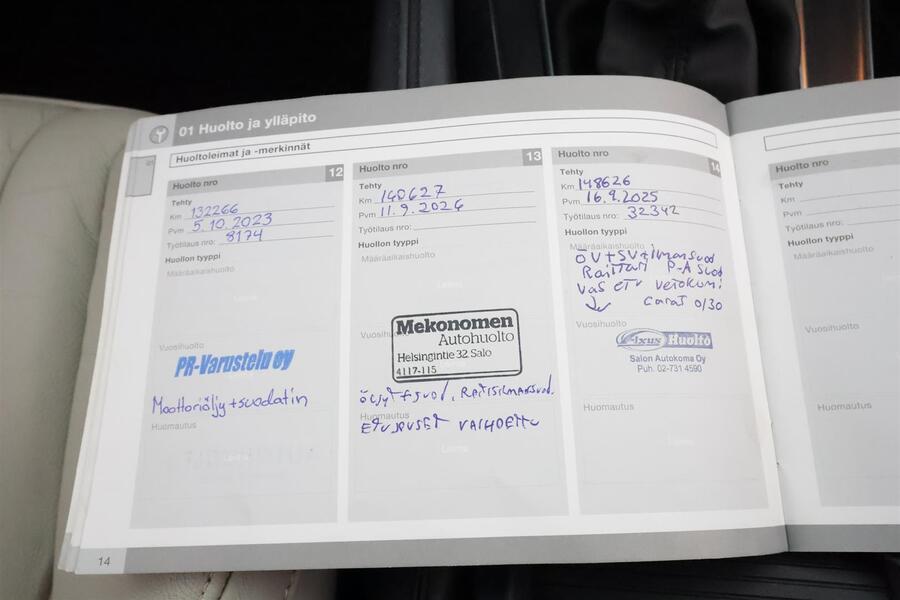 01 Huolto ja ylläpito
Huoltoleimat ja -merkinnät
Huolto nro 12
Tehty
Km 132266
Pvm 5.10.2023
Työtilaus nro: 8174
Huollon tyyppi
Määräaikaishuolto
Leima
Vuosihuolto
PR-Varustelu oy
Moottoriöljy+suodatin
Huomautus
Huolto nro 13
Tehty
Km 140627
Pvm 11.9.2024
Työtilaus nro:
Huollon tyyppi
Määräaikaishuolto
Leima
Vuosihuolto
Mekonomen
Autohuolto
Helsingintie 32, Salo
4117-115
öljyt + suod, Raitisilmansuod.
Huomautus
ETUJOUSET VAIHDETTU
Leima
Huolto nro 14
Tehty
Km 148626
Pvm 16.9.2025
Työtilaus nro: 32342
Huollon tyyppi
Määräaikaishuolto
ÖV+SV+Ilmansuod
Raittari P-A suod
Vas ETU vetokumi
Carat 0/30
Vuosihuolto
Axus Huolto
Salon Autokoma Oy
Puh. 02-731 4590
Huomautus
Huolto nro
Tehty
Km
Pvm
Työtilaus nro:
Huollon tyyppi
Määräaikaishuolto
Vuosihuolto
Huomautus
14